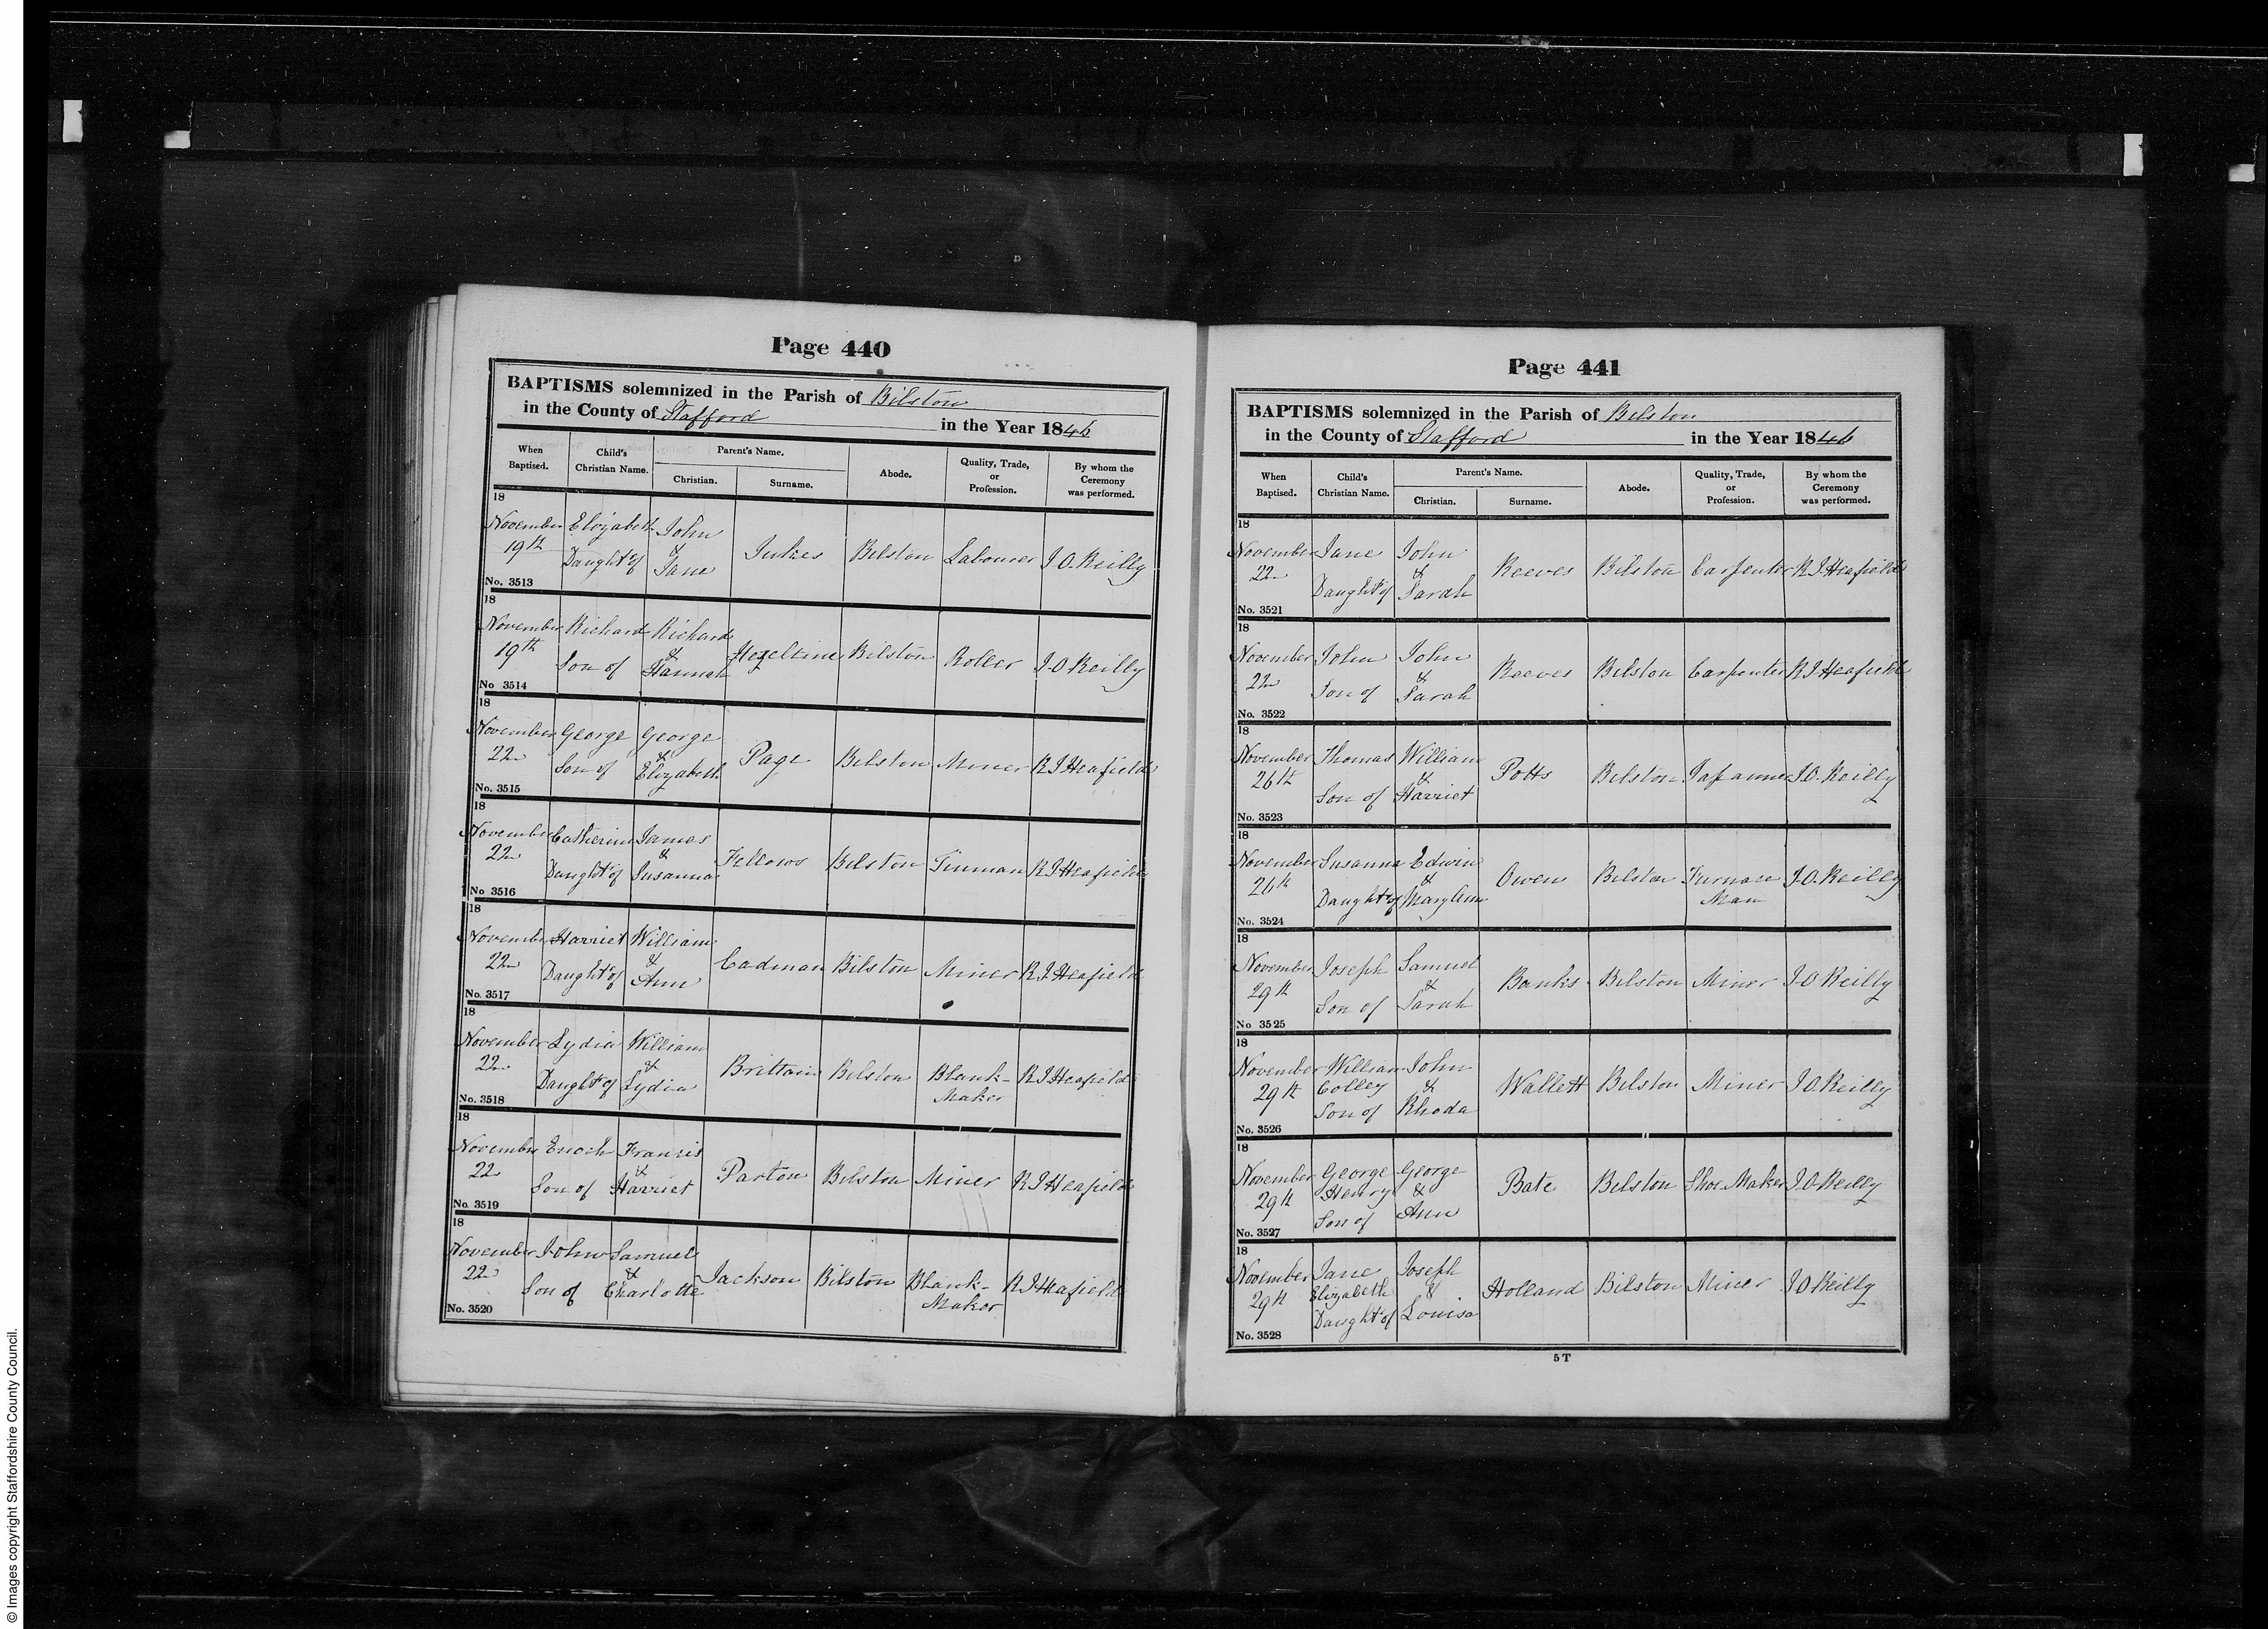 Page 440
BAPTISMS solemnized in the Parish of Bilston
in the County of Stafford in the Year 1846
When Baptised. Child's Christian Name. Parent's Name. Christian. Surname. Abode. Quality, Trade, or Profession. By whom the Ceremony was performed.
18
November Elizabeth John
19th Daught of & Jane Jukes Bilston Labourer J.O.Reilly
No. 3513
18
November Richard Richard
19th Son of & Hannah Hezeltine Bilston Roller J.O Reilly
No 3514
18
November George George
22 Son of & Elizabeth Page Bilston Miner R.J.Heafield
No. 3515
18
November Catherine James
22 Daught of & Susanna Fellows Bilston Tinman R.J.Heafield
No 3516
18
November Harriet William
22 Daught of & Ann Cadman Bilston Miner R.J.Heafield
No. 3517
18
November Lydia William
22 Daught of & Lydia Brittain Bilston Blank-Maker R.J.Heafield
No. 3518
18
November Enoch Francis
22 Son of & Harriet Parton Bilston Miner R.J.Heafield
No. 3519
18
November John Samuel
22 Son of & Charlotte Jackson Bilston Blank-Maker R.J.Heafield
No. 3520
Page 441
BAPTISMS solemnized in the Parish of Bilston
in the County of Stafford in the Year 1846
When Baptised. Child's Christian Name. Parent's Name. Christian. Surname. Abode. Quality, Trade, or Profession. By whom the Ceremony was performed.
18
November Jane John
22 Daught of & Sarah Reeves Bilston Carpenter R.J.Heafield
No. 3521
18
November John John
22 Son of & Sarah Reeves Bilston Carpenter R.J.Heafield
No. 3522
18
November Thomas William
26th Son of & Harriet Potts Bilston Japanner J.O.Reilly
No. 3523
18
November Susanna Edwin
26th Daught of & Mary Ann Owen Bilston Furnace Man J.O.Reilly
No. 3524
18
November Joseph Samuel
29th Son of & Sarah Banks Bilston Miner J.O Reilly
No 3525
18
November William John
29th Colley Son of & Rhoda Wallett Bilston Miner J.O.Reilly
No. 3526
18
November George George
29th Henry Son of & Ann Bate Bilston Shoe Maker J.O.Reilly
No. 3527
18
November Jane Joseph
29th Elizabeth Daught of & Louisa Holland Bilston Miner J O Reilly
No. 3528
5 T
© Images copyright Staffordshire County Council.